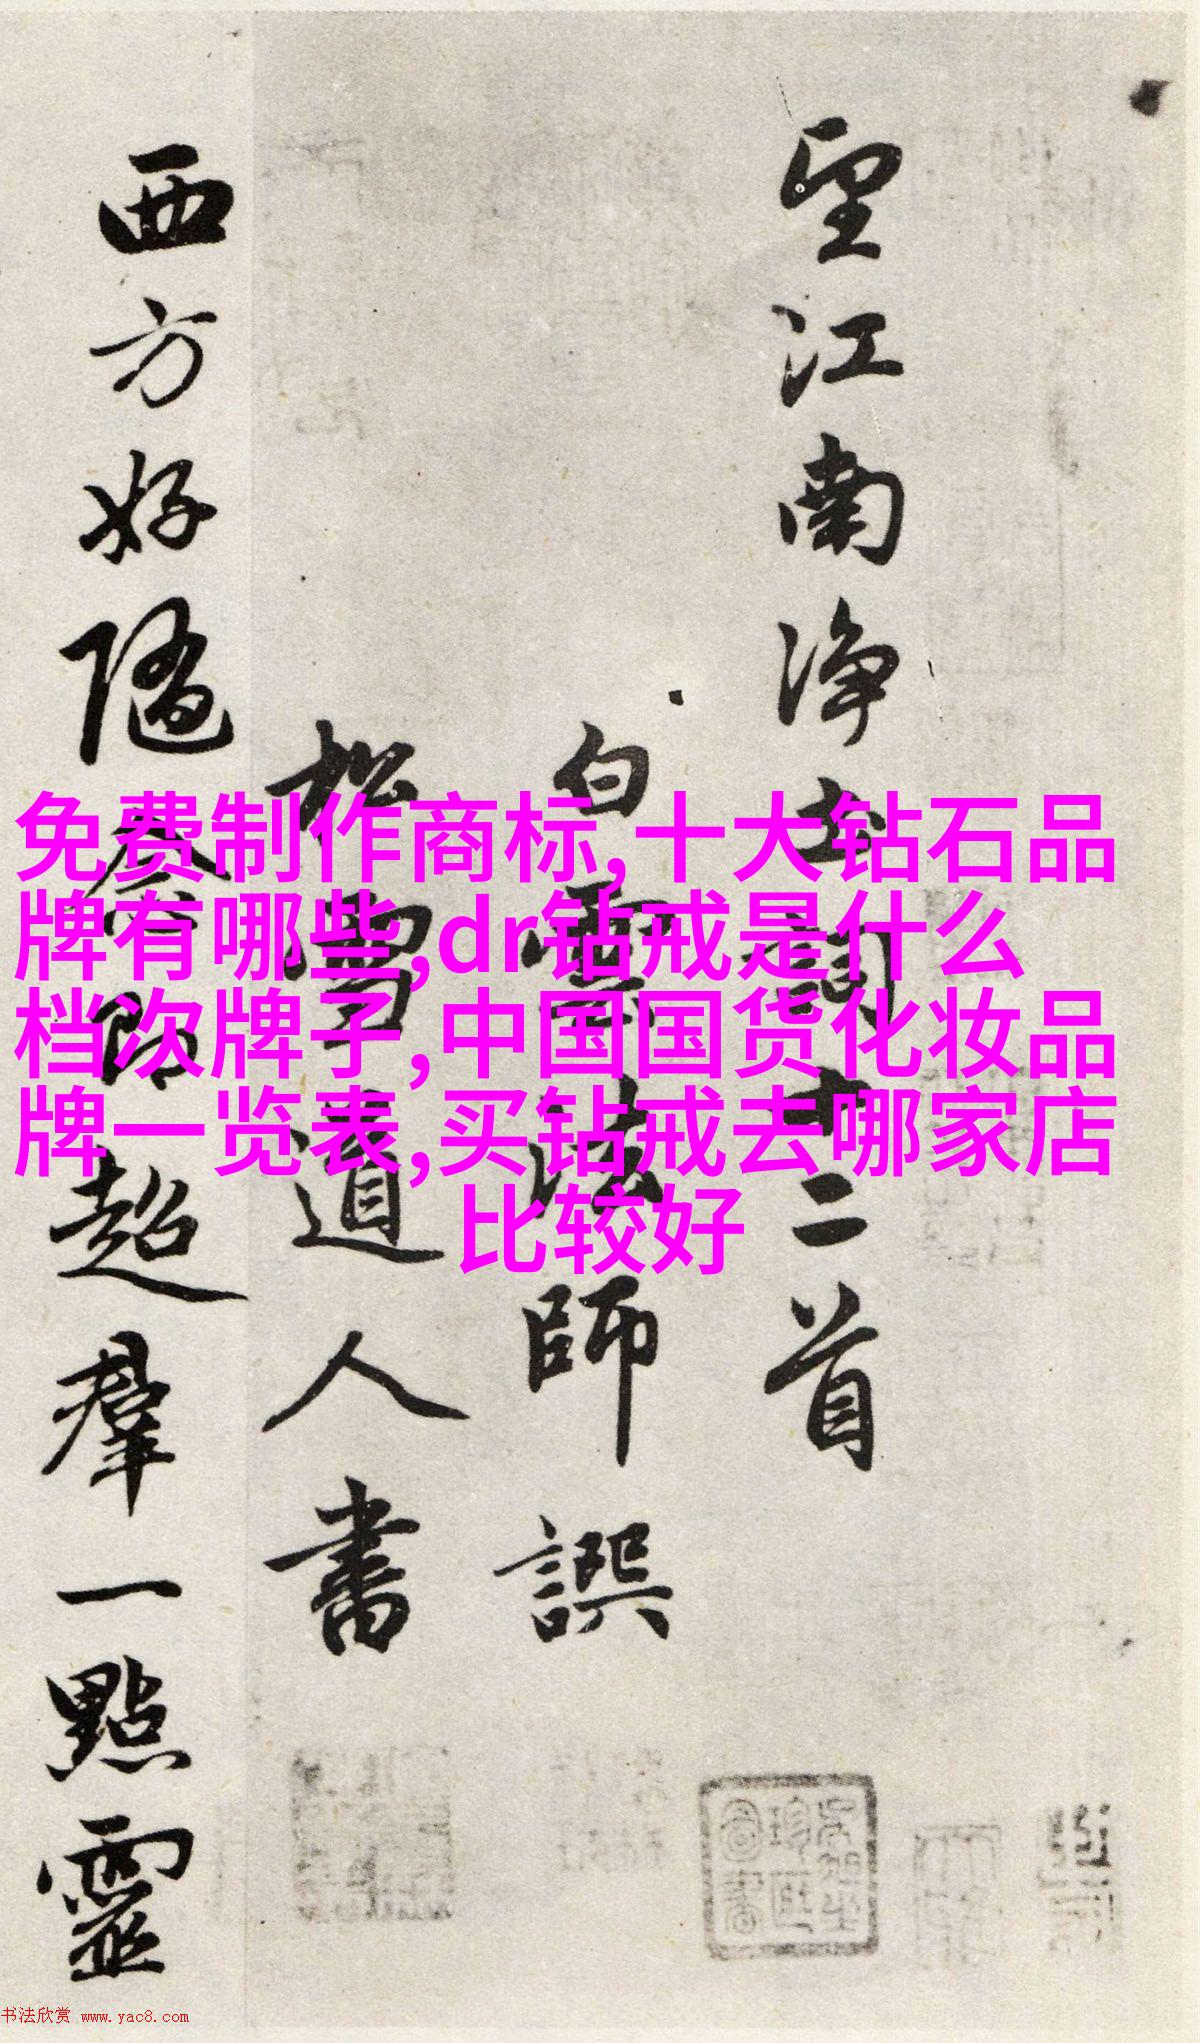 望江南淨土詞十二首
白雲法師譔
松雪道人書
西方好隨念即超羣一點靈
免费制作商标,十大钻石品
牌有哪些,dr钻戒是什么
档次牌子,中国国货化妆品
牌一览表,买钻戒去哪家店
比较好
书法欣赏 www.yac8.com